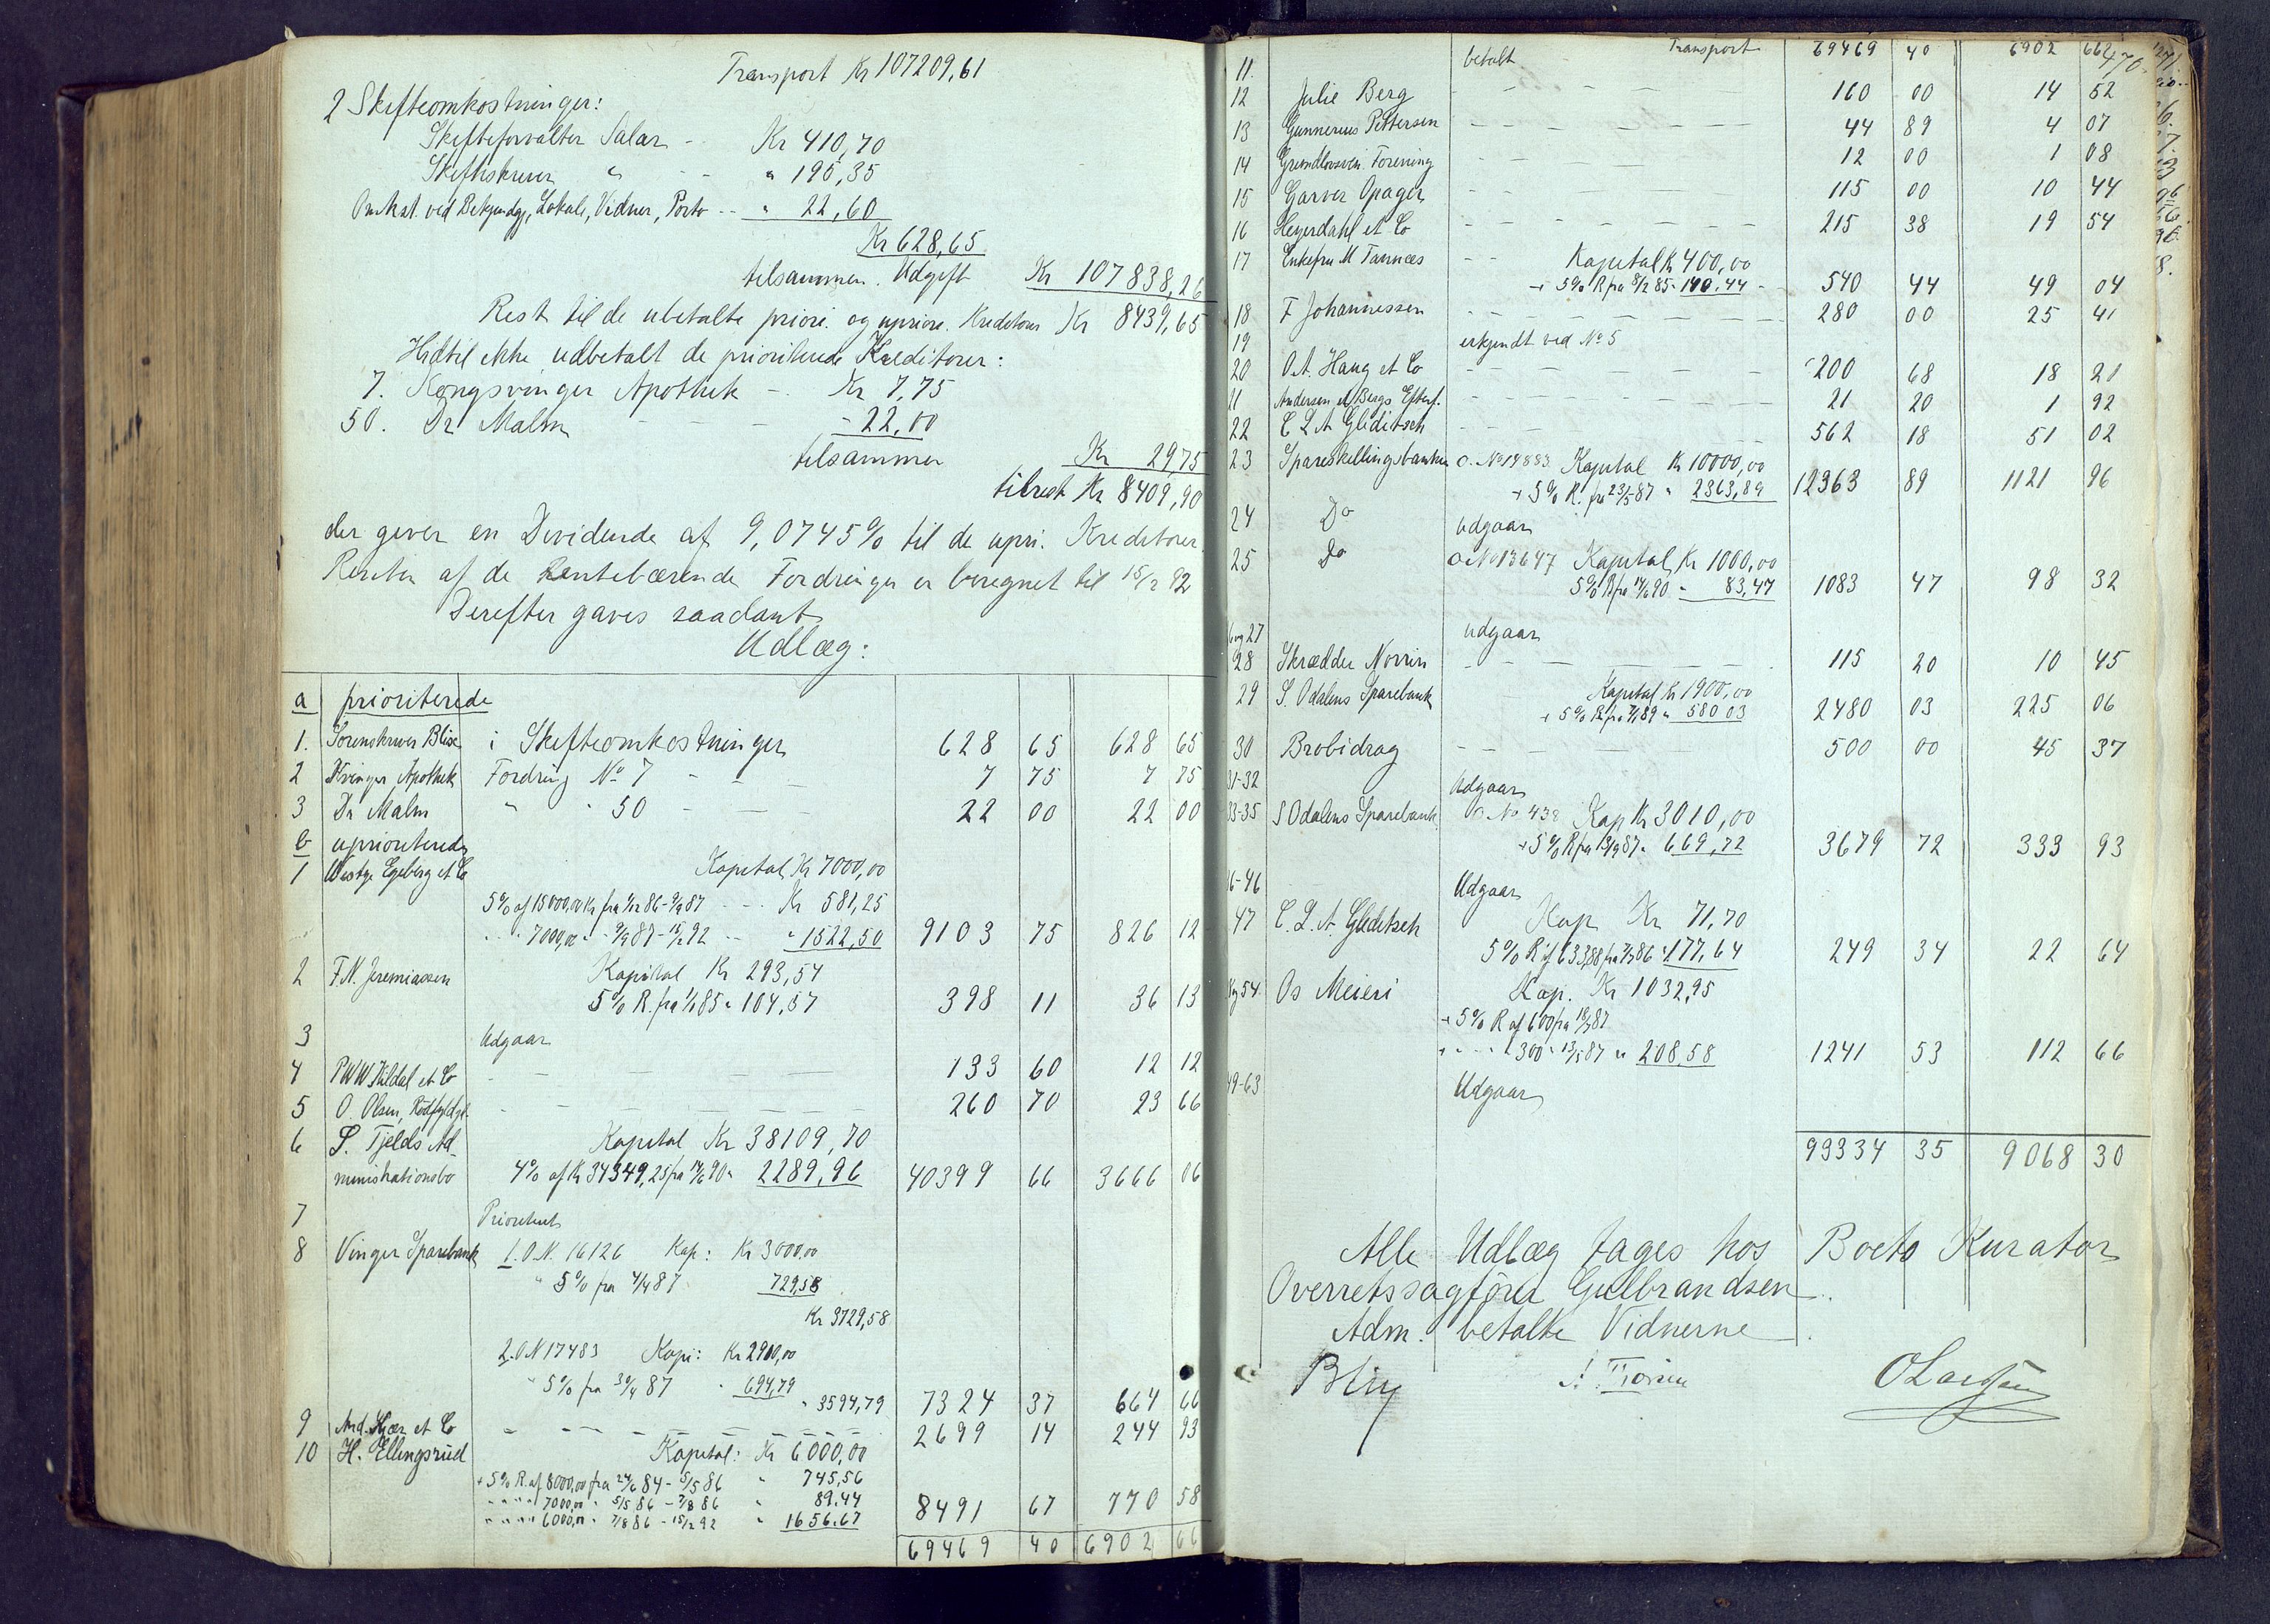 Transport Kr 107209,61
2 Skifteomkostninger:
Skifteforvalter Salar - Kr 410,70
Skifteskriver " - - " 195,35
Omkst. ved Bekjendtg, Lokale, Vidner, Porto -- " 22,60
Kr 628,65
tilsammen Udgift Kr 107838,26
Rest til de ubetalte priori. og upriori. Kreditorer Kr 8439,65
Hidtil ikke udbetalt de prioriterede Kreditorer:
7. Kongsvinger Apothek - Kr 7,75
50. Dr Malm - - - - 22,00
tilsammen Kr 29,75
tilrest Kr 8409,90
der giver en Dividende af 9,0745% til de upri. Kreditorer.
Renten af de Rentebærende Fordringer er beregnet til 15/2 92
Derefter gaves saadant
Udlæg:
a prioriterede
1. Sorenskriver Blix i Skifteomkostninger 628 65 628 65
2 Kvinger Apothek Fordring No 7 - - - 7 75 7 75
3 Dr Malm " " 50 - - - 22 00 22 00
b uprioriterede
1 Westye Egeberg et Co Kapital Kr 7000,00
5% af 15000,00 Kr fra 1/12 86 - 9/9 87 - - - Kr 581,25
" " 7000,00 " 9/9 87 - 15/2 92 -- " 1522,50 9103 75 826 12
2 F.N. Jeremiassen Kapital Kr 293,54
5% R. fra 1/1 85 " 104,57 398 11 36 13
3 Udgaar
4 PWW Kildal et Co - - - - 133 60 12 12
5 O. Olsen, - - - - 260 70 23 66
6 S. Tjelds Ad- Kapital Kr 38109,70
ministrationsbo 4% af Kr 34349,25 fra 14/6 90 " 2289,96 40399 66 3666 06
7 Prioritert
8 Vinger Sparebank 1. O.N. 16126 Kap: Kr 3000,00
" 5% fra 4/4 87 729,58
Kr 3729,58
2. O N 17483 Kapi: Kr 2900,00
" 5% fra 30/4 87 " 694,79
" 3594,79 7324 37 664 66
9 And. Kjær et Co - - - - - 2699 14 244 93
10 H. Ellingsrud Kapital: Kr 6000,00
+ 5% R. af 8000,00 fra 24/6 84 - 5/5 86 " 745,56
" " " " 7000,00 " 5/5 86 - 7/8 86 " 89.44
" " " " 6000,00 " 7/8 86 - 15/2 92 " 1656.67 8491 67 770 58
69469 40 6902 66
11. betalt Transport 69469 40 6902 66
470.
12 Julie Berg - - - - 160 00 14 52
13 Gunnerius Pettersen - - - - 44 89 4 07
14 Grundlovsven. Forening - - - - 12 00 1 08
15 Garver Opager - - - - 115 00 10 44
16 Heyerdahl et Co - - - - 215 38 19 54
17 Enkefru M Tannæs - - Kapital Kr 400,00
+ 5% R fra 8/2 85 " 140.44 - 540 44 49 04
18 F Johannessen - - - - 280 00 25 41
19 erkjendt ved No 5
20 O.A. Haug et Co - - - - 200 68 18 21
21 Andersen & Bergs Efterf. - - - - 21 20 1 92
22 C L A Gliditsch - - - 562 18 51 02
23 Spareskillingsbanken O. No 14883 Kapital Kr 10000,00
+ 5% R. fra 23/5 87 " 2363,89 12363 89 1121 96
24 Do Udgaar
25 Do O No 13647 Kapital Kr 1000,00
5% R fra 14/6 90 - 83,47 1083 47 98 32
6 og 27 Udgaar
28 Skrædder Norrin - - - - 115 20 10 45
29 S. Odalens Sparebank - Kapital Kr 1900,00
+ 5% R fra 7/1 89 " 580 03 2480 03 225 06
30 Brobidrag - - - - 500 00 45 37
31-32 Udgaar
33-35 S Odalens Sparebank O. No 438 Kap Kr 3010,00
+ 5% R fra 13/9 87 " 669,72 3679 72 333 93
36-46 Udgaar
47 C. L. A. Gliditsch Kap Kr 71,70
5% R af 633,88 fra 7/7 86 " 177,64 249 34 22 64
og 54 Os Meieri Kap. Kr 1032,95
+ 5% R af 600 fra 18/3 87
+ " " " 300 " 13/5 87 " 208.58 1241 53 112 66
49-63 Udgaar
99334 35 9068 30
Alle Udlæg tages hos Boets Kurator
Overretssagfører Gulbrandsen.
Adm. betalte Vidnerne.
Blix